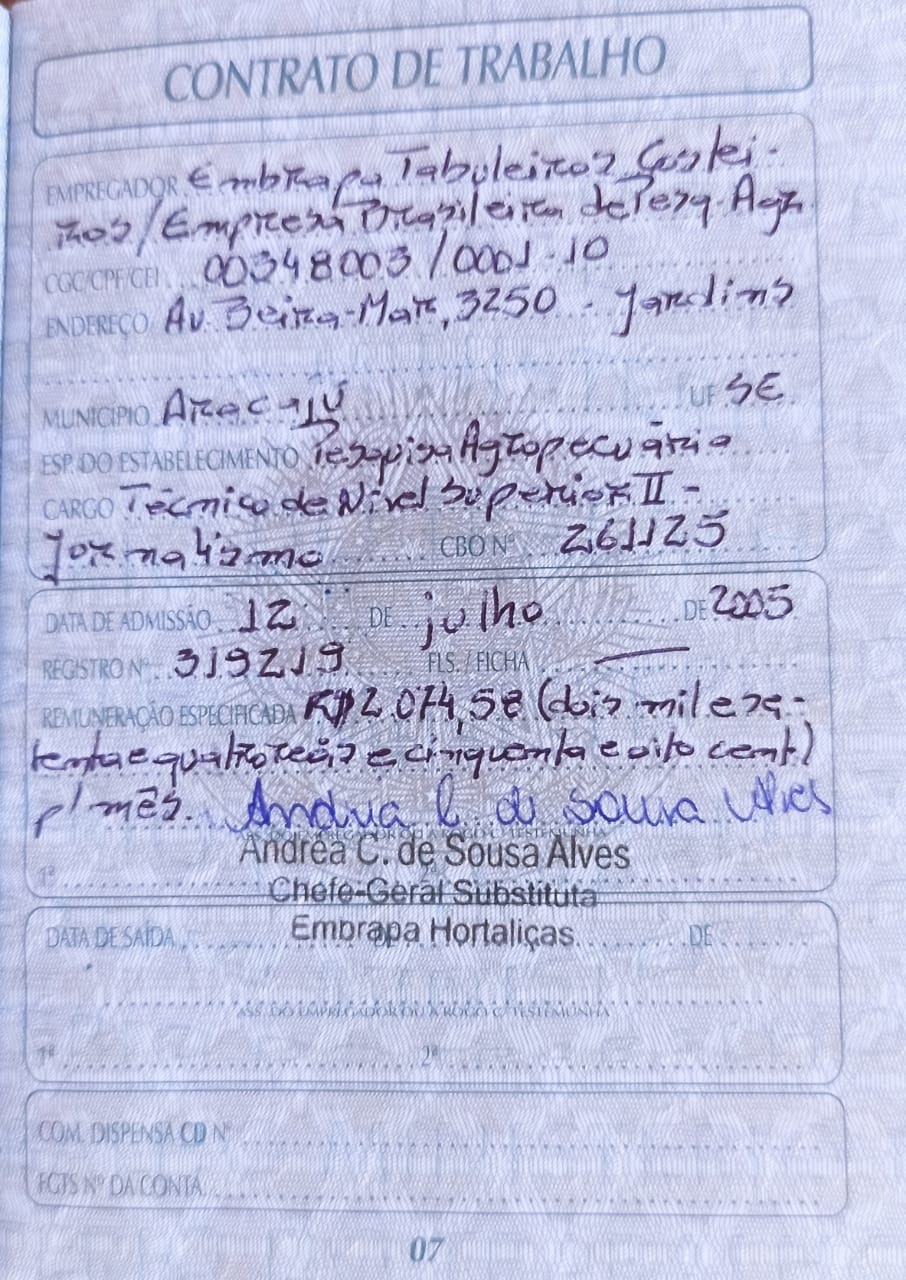 CONTRATO DE TRABALHO
EMPREGADOR Embrapa Tabuleiros Costei-
ros/Empresa Brasileira de Pesq. Agr.
CGC/CPF/CEI 00348003/0001-10
ENDEREÇO Av. Beira-Mar, 3250 - Jardins
MUNICÍPIO Aracajú UF SE
ESP. DO ESTABELECIMENTO Pesquisa Agropecuária
CARGO Técnico de Nível Superior II -
Jornalismo CBO Nº 261125
DATA DE ADMISSÃO 12 DE julho DE 2005
REGISTRO Nº 319219 FLS. / FICHA
REMUNERAÇÃO ESPECIFICADA R$ 2.074,58 (dois mil e se-
tenta e quatro reais e cinquenta e oito cent.)
p/ mês. Andréa C. de Sousa Alves
ASS. DO EMPREGADOR OU A ROGO C/ TESTEMUNHA
Andréa C. de Sousa Alves
1ª
Chefe-Geral Substituta
DATA DE SAÍDA Embrapa Hortaliças DE
ASS. DO EMPREGADOR OU A ROGO C/ TESTEMUNHA
1ª 2ª
COM. DISPENSA CD Nº
FGTS Nº DA CONTA
07